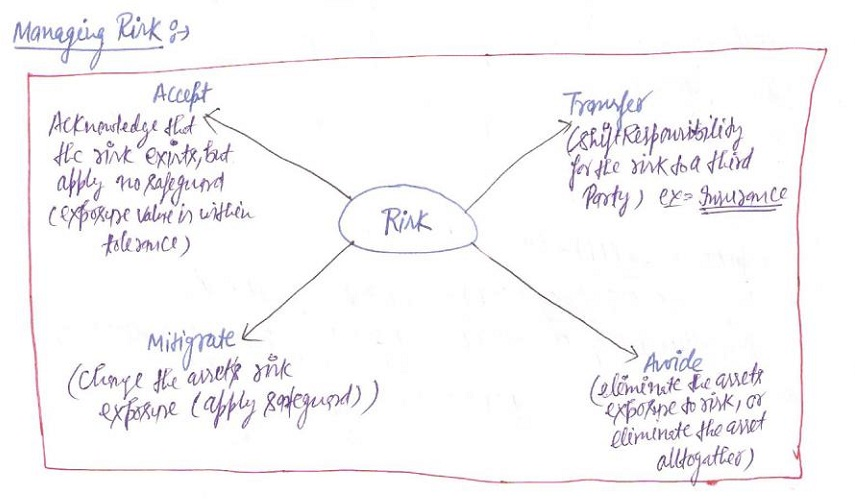 Managing Risk :→
Accept
Acknowledge that
the risk exists, but
apply no safeguard
(exposure value is within
tolerance)
Transfer
(shift Responsibility
for the risk to a third
Party) ex = Insurance
Risk
Mitigrate
(Change the assets risk
exposure (apply safeguard))
Avoide
(eleminate the assets
exposure to risk, or
eleminate the asset
alltogather)